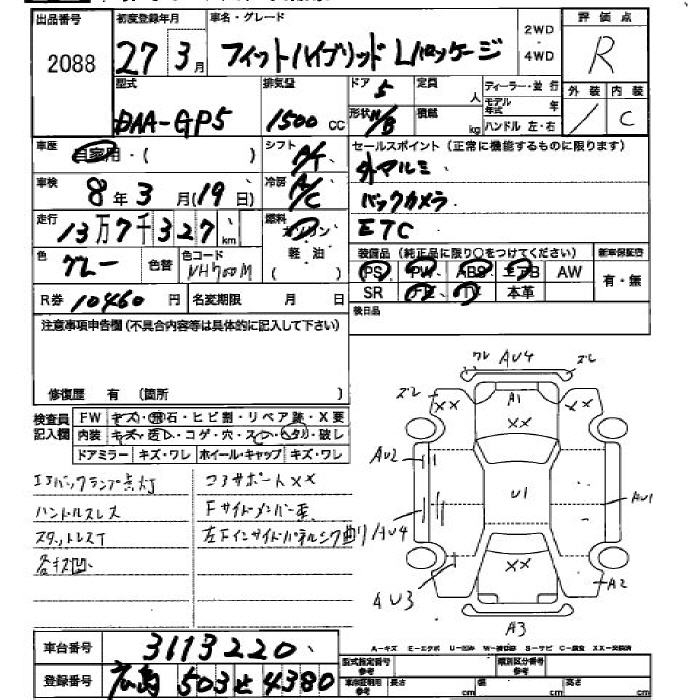 出品番号 初度登録年月 車名・グレード 2WD ・ 4WD 評価点
2088 27 3月 フィットハイブリッド Lパッケージ R
型式 排気量 ドア 5 定員 人 ディーラー・並行 外装 内装
DAA-GP5 1500 cc 形状 H/B 積載 kg モデル年式 年 ハンドル 左・右 / C
車歴 自家用・( ) シフト A/T セールスポイント (正常に機能するものに限ります)
車検 8年3月(19日) 冷房 A/C 外アルミ、
バックカメラ
走行 13万7千327km 燃料 ガソリン 軽・油 ETC
色 グレー 色替 色コード NH700M 装備品 (純正品に限り○をつけてください) 新車保証書
PS PW ABS エアB AW 有・無
R券 10460円 名変期限 月 日 SR ナビ TV 本革
注意事項申告欄(不具合内容等は具体的に記入して下さい) 後日品
修復歴 有 (箇所 )
検査員記入欄 FW キズ・飛石・ヒビ割・リペア跡・X要
内装 キズ・汚レ・コゲ・穴・スレ・ヘタリ・破レ
ドアミラー キズ・ワレ ホイール・キャップ キズ・ワレ
エアバックランプ点灯 コアサポートXX
ハンドルスレ Fサイドメンバー歪
スタットレスT 左Fインサイドパネルシワ曲り
各キズ凹
ワレ AU4 ズレ
ズレ XX A1 XX
XX
AU2
U1 AU1
AU4
XX
AU3 A2
A3
A-キズ E-エクボ U-凹み W-補修跡 S-サビ C-腐食 XX-交換済
車台番号 3113220
登録番号 広島 503 せ 4380
型式指定番号 参考 類別区分番号 参考
車体証明用 参考 長さ cm 幅 cm 高さ cm